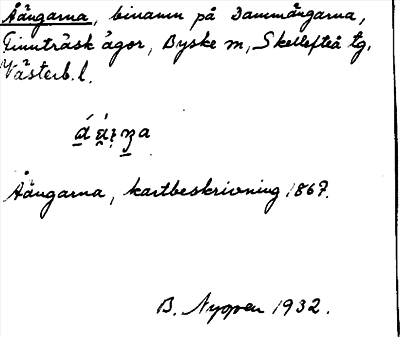 Åängarna, binamn på Dammängarna,
Finnträsk ägor, Byske sn, Skellefteå tg.
Västerb. l.
Åängarna, kartbeskrivning 1867.
B. Nygren 1932.